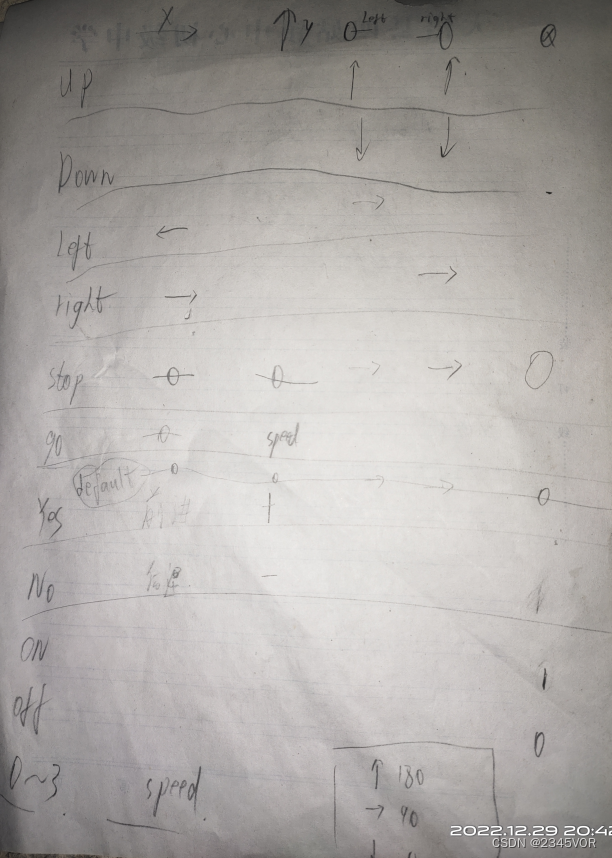 X → ↑ Y 0- left right -0 Q
Up ↑ ↑
Down ↓ ↓
left ← →
right → →
stop 0 0 → → 0
go 0 speed
default 0 0 → → 0
Yes +
No -
ON 1
off 0
0~3 speed
↑ 180
→ 90
↓
2022.12.29 20:42
CSDN @2345VOR